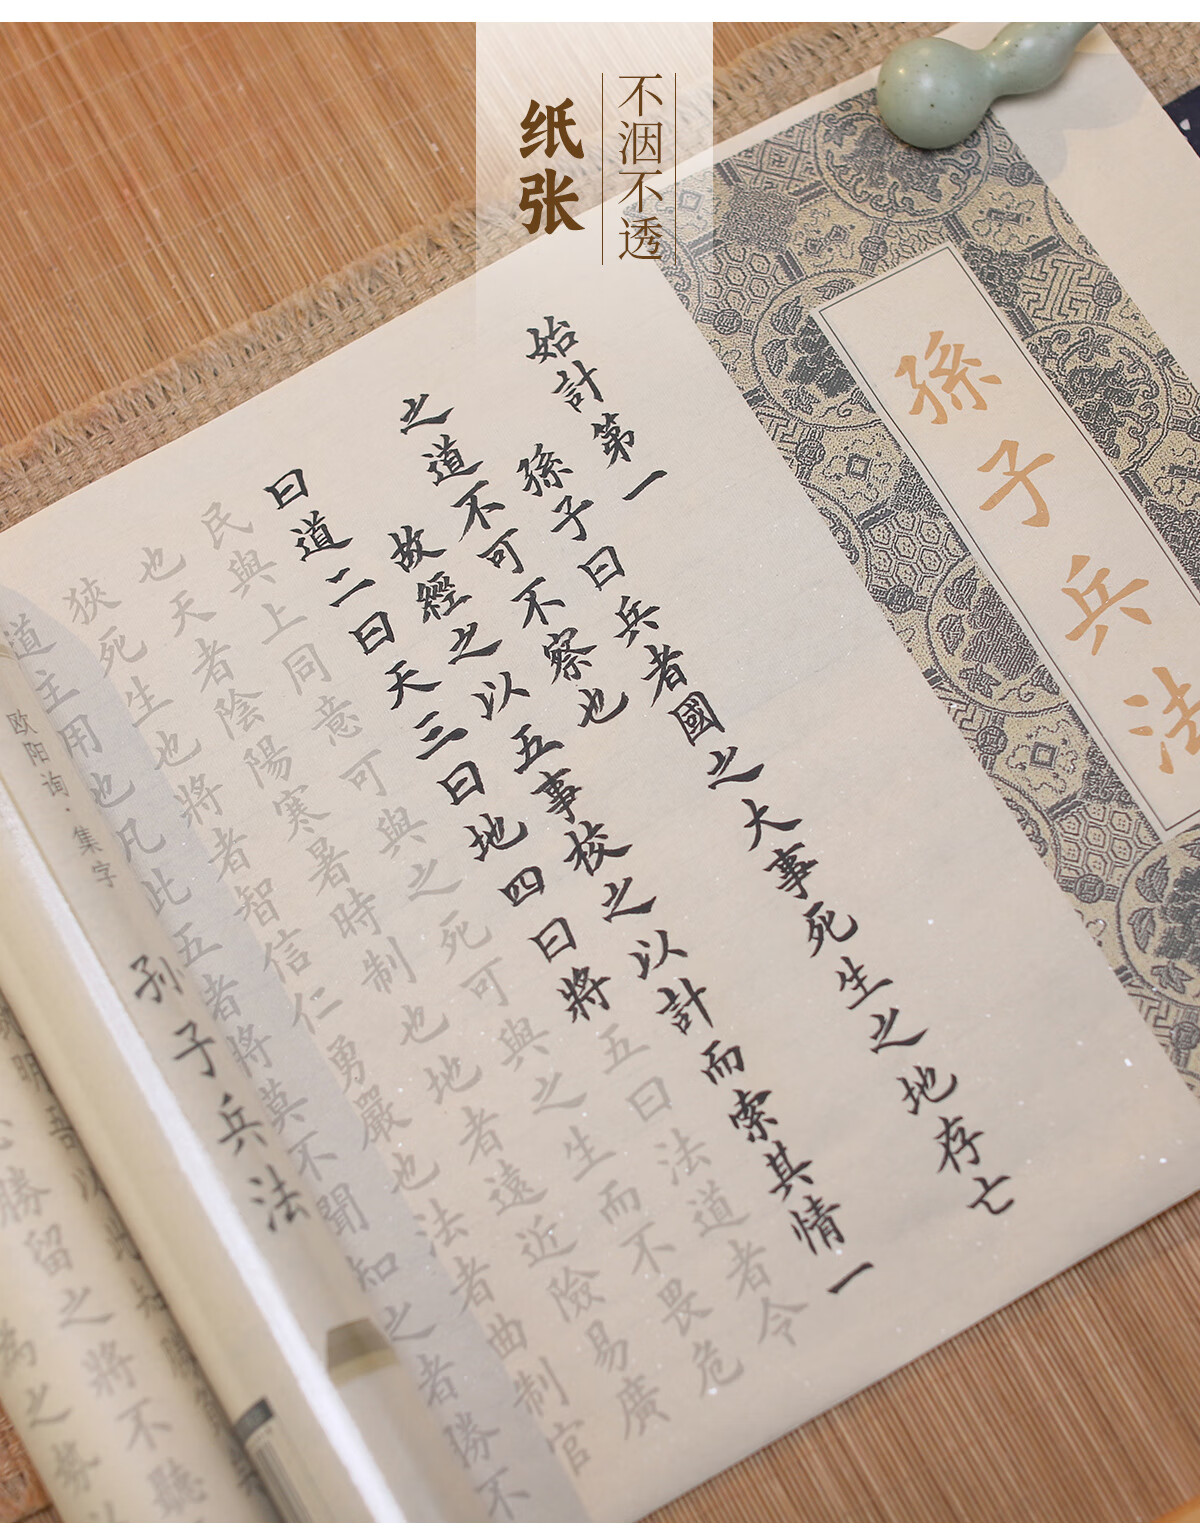 纸张
不洇不透
孫子兵法
始計第一
孫子曰兵者國之大事死生之地存亡
之道不可不察也
故經之以五事校之以計而索其情一
曰道二曰天三曰地四曰將五曰法道者令
民與上同意可與之死可與之生而不畏危
也天者陰陽寒暑時制也地者遠近險易廣
狹死生也將者智信仁勇嚴也法者曲制官
道主用也凡此五者將莫不聞知之者勝不
欧阳询·集字
孙子兵法
明吾以此知勝負
勝留之將不聽
為之勢以